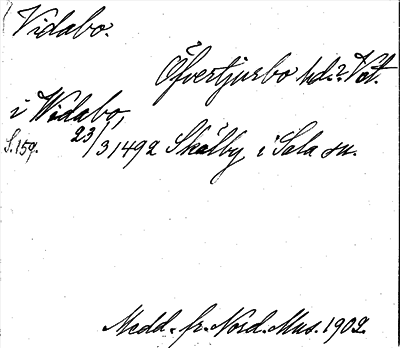 Vidabo.
Öfvertjurbo hd? Vet.
i Widabo,
S. 159. 23/3 1492 Skälby i Sala sn.
Medd. fr. Nord. Mus. 1902.